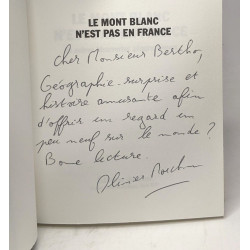 LE MONT BLANC
N'EST PAS EN FRANCE
Cher Monsieur Bertho,
Géographie surprise et
histoire amusante afin
d'offrir un regard un
peu neuf sur le monde ?
Bonne lecture.
Olivier